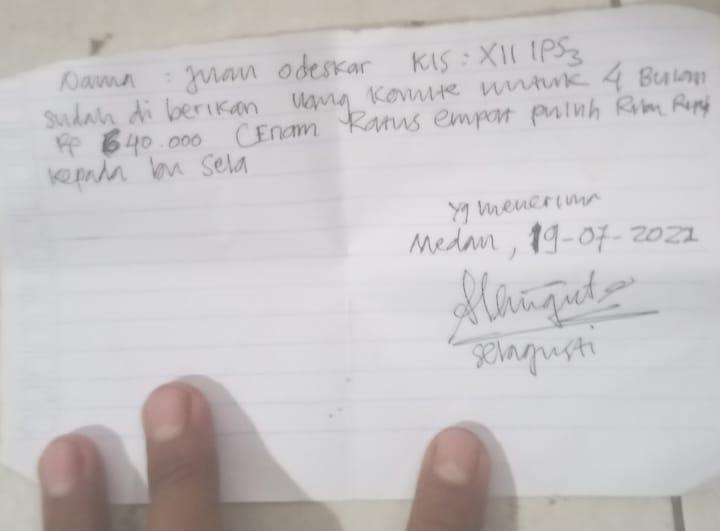 Nama : Juan Odeskar Kls : XII IPS3
sudah di berikan uang Komite untuk 4 Bulan
Rp 640.000 (Enam Ratus empat puluh Ribu Rupiah
kepada bu Sela
yg menerima
Medan, 19-07-2022
selagusti